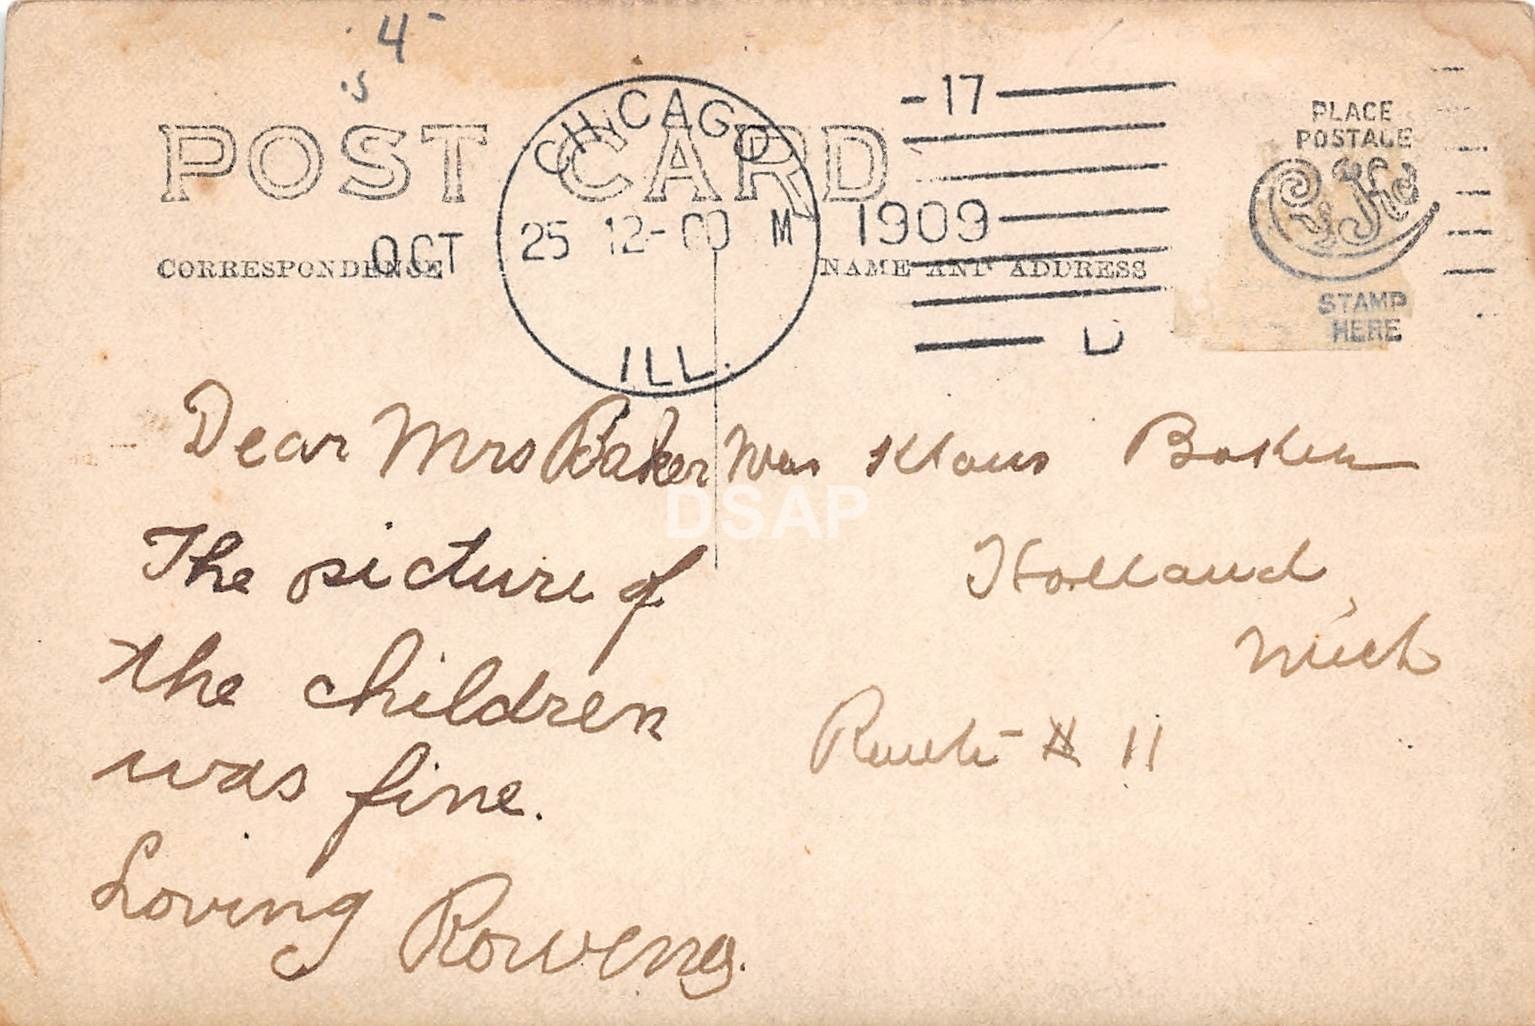 4
POST CARD
CHICAGO
ILL.
OCT 25 12-00 M 1909
-17
D
PLACE
POSTAGE
STAMP
HERE
CORRESPONDENCE
NAME AND ADDRESS
Dear Mrs Baker
The picture of
the children
was fine.
Loving
Rowena.
Mrs Klaus Baker
Holland,
Mich
Route # 11
DSAP